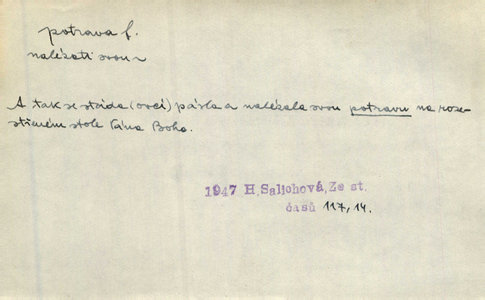 potrava f.
nalézati svou ~
A tak se stáda (ovcí) pásla a nalézala svou potravu na roze-
střeném stole Pána Boha.
1947 H.Saljohová, Ze st.
časů 117, 14.